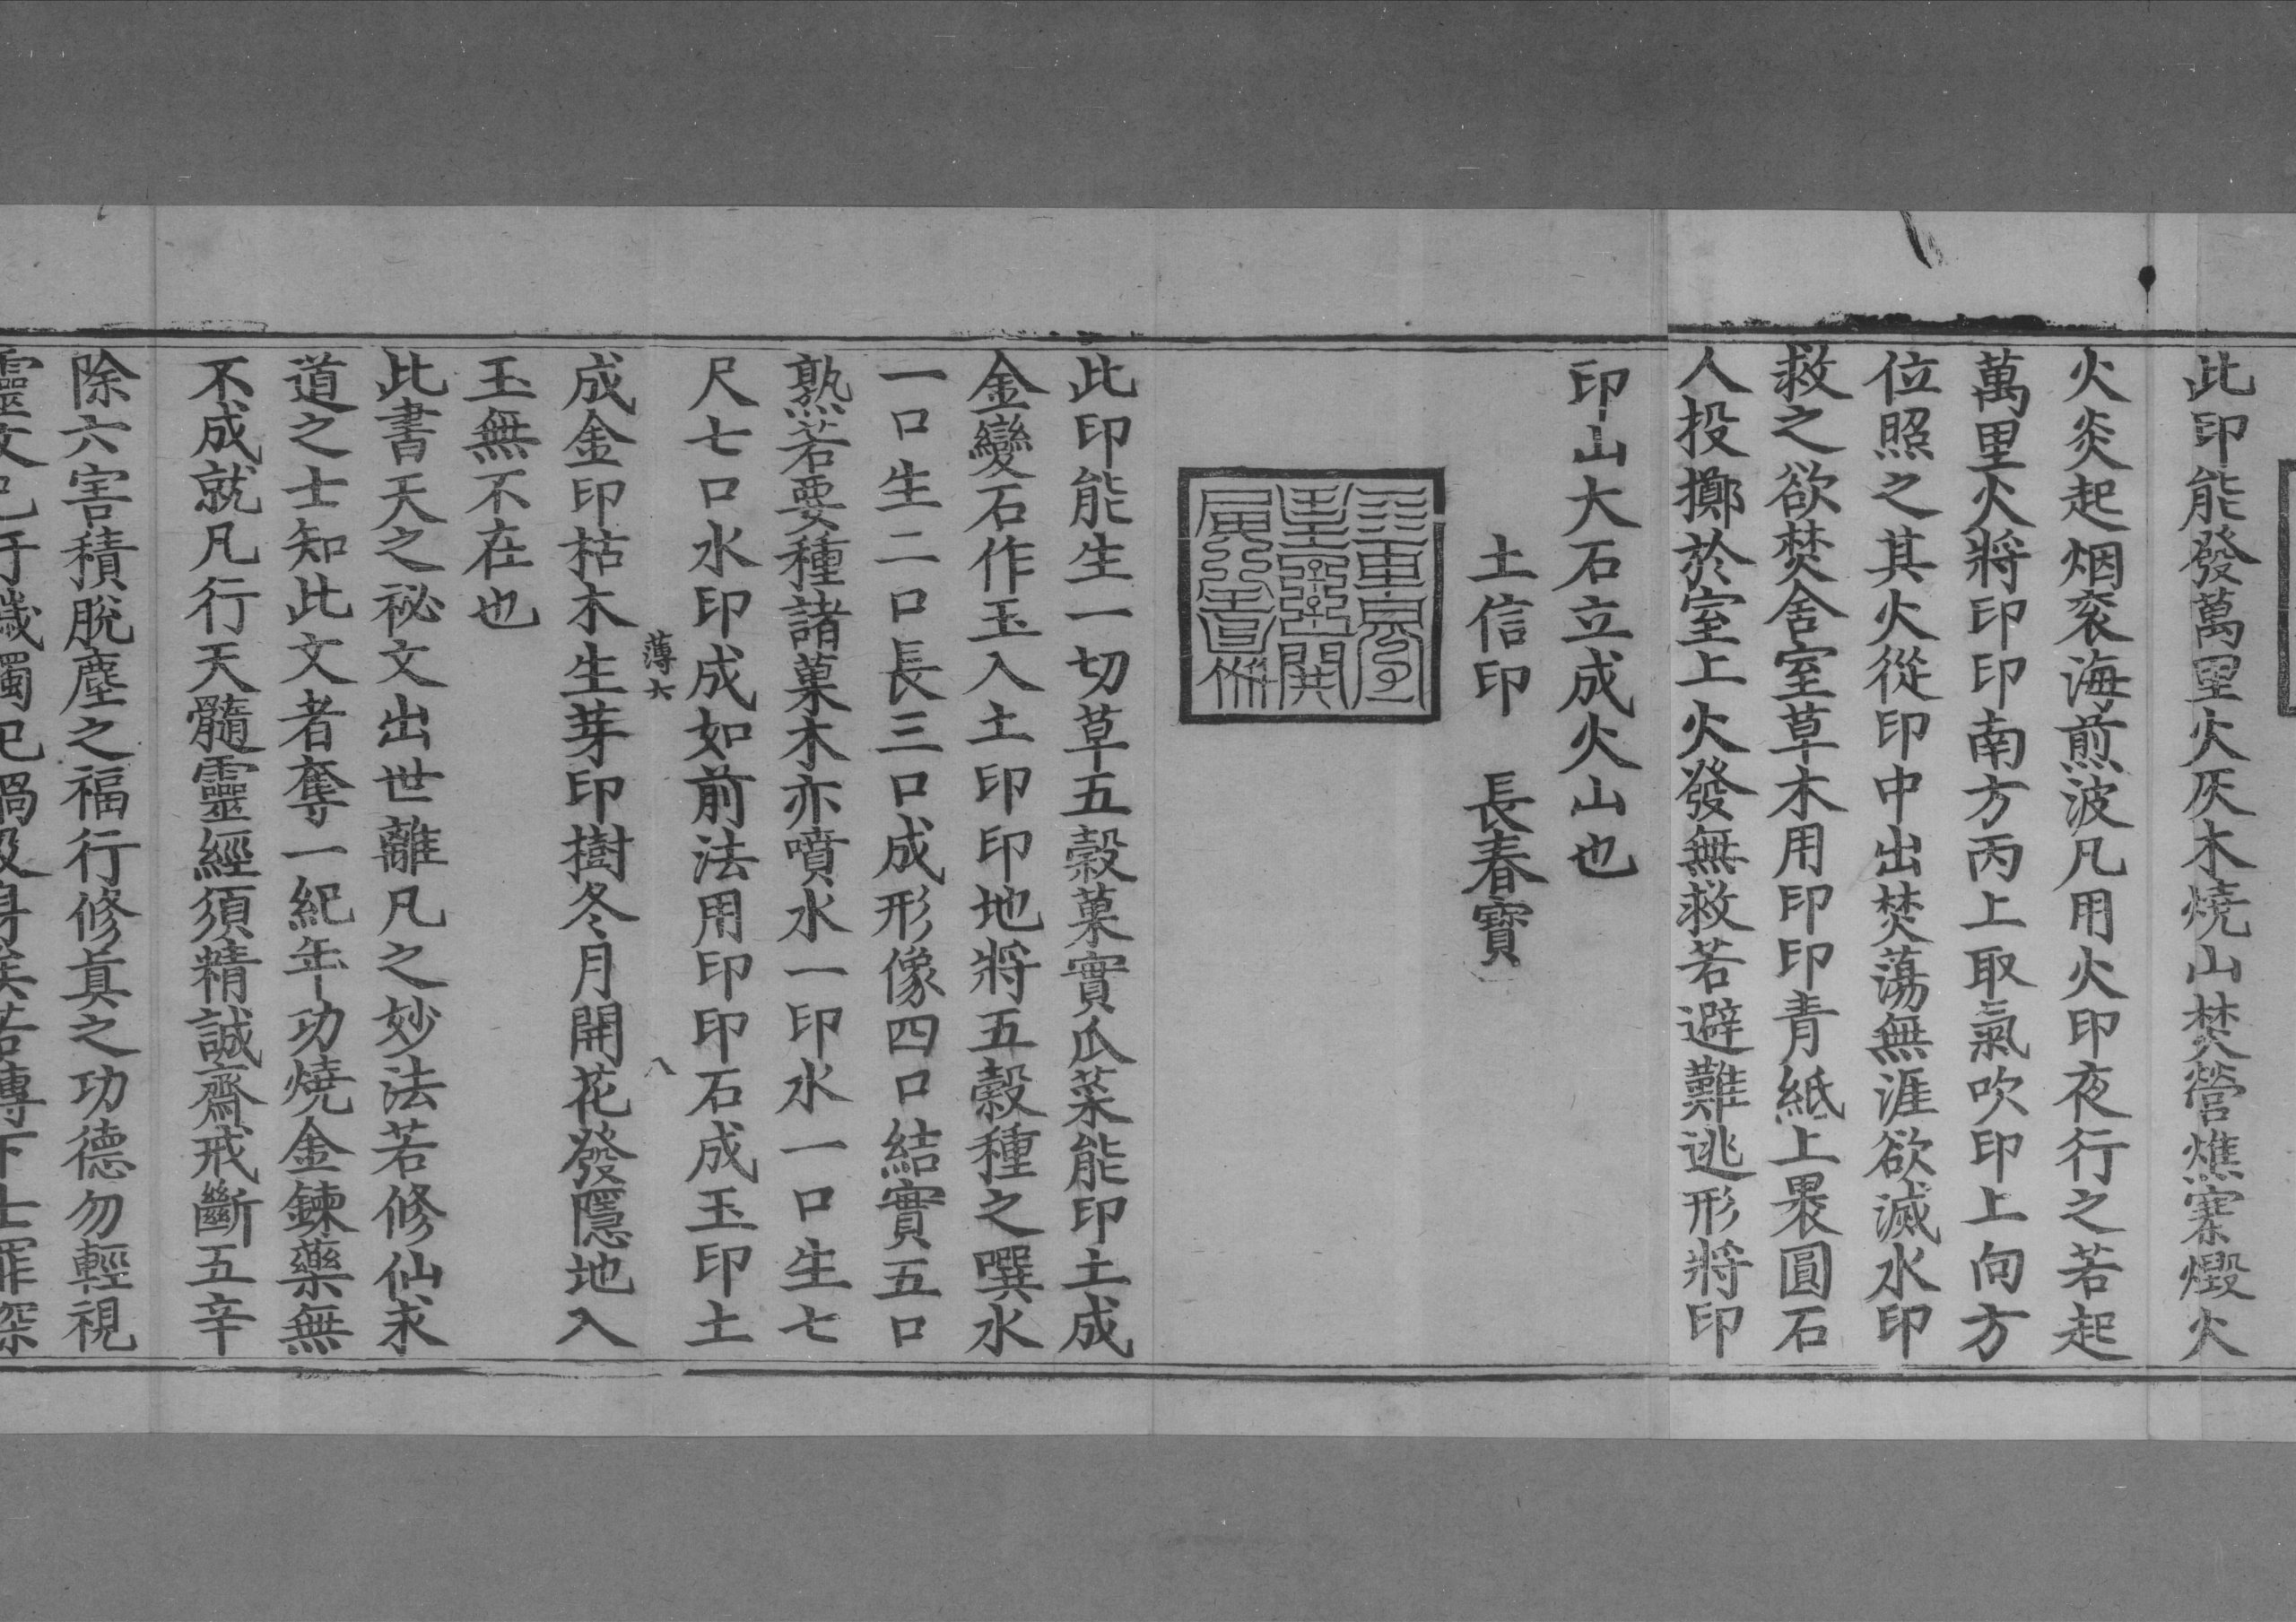 此印能發萬里火灰木燒山焚營燋寨燬火
火炎起烟衮海煎波凡用火印夜行之若起
萬里火將印印南方丙上取氣吹印上向方
位照之其火從印中出焚蕩無涯欲滅水印
救之欲焚舍室草木用印印青紙上褁圓石
人投擲於室上火發無救若避難逃形將印
印山大石立成火山也
土信印 長春寶
此印能生一切草五穀菓實瓜菜能印土成
金變石作玉入土印印地將五穀種之噀水
一口生二口長三口成形像四口結實五口
熟若要種諸菓木亦噴水一印水一口生七
尺七口水印成如前法用印印石成玉印土
薄六
成金印枯木生芽印樹冬月開花發隱地入
玉無不在也
此書天之祕文出世離凡之妙法若修仙求
道之士知此文者奪一紀年功燒金鍊藥無
不成就凡行天髓靈經須精誠齋戒斷五辛
除六害積脫塵之福行修真之功德勿輕視